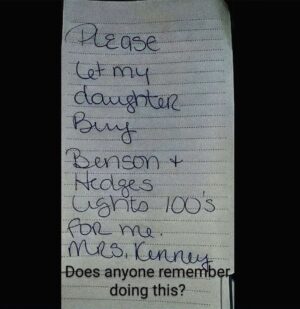 Please
let my
daughter
Buy
Benson +
Hedges
Lights 100's
for me.
MRS. Kenney
Does anyone remember
doing this?